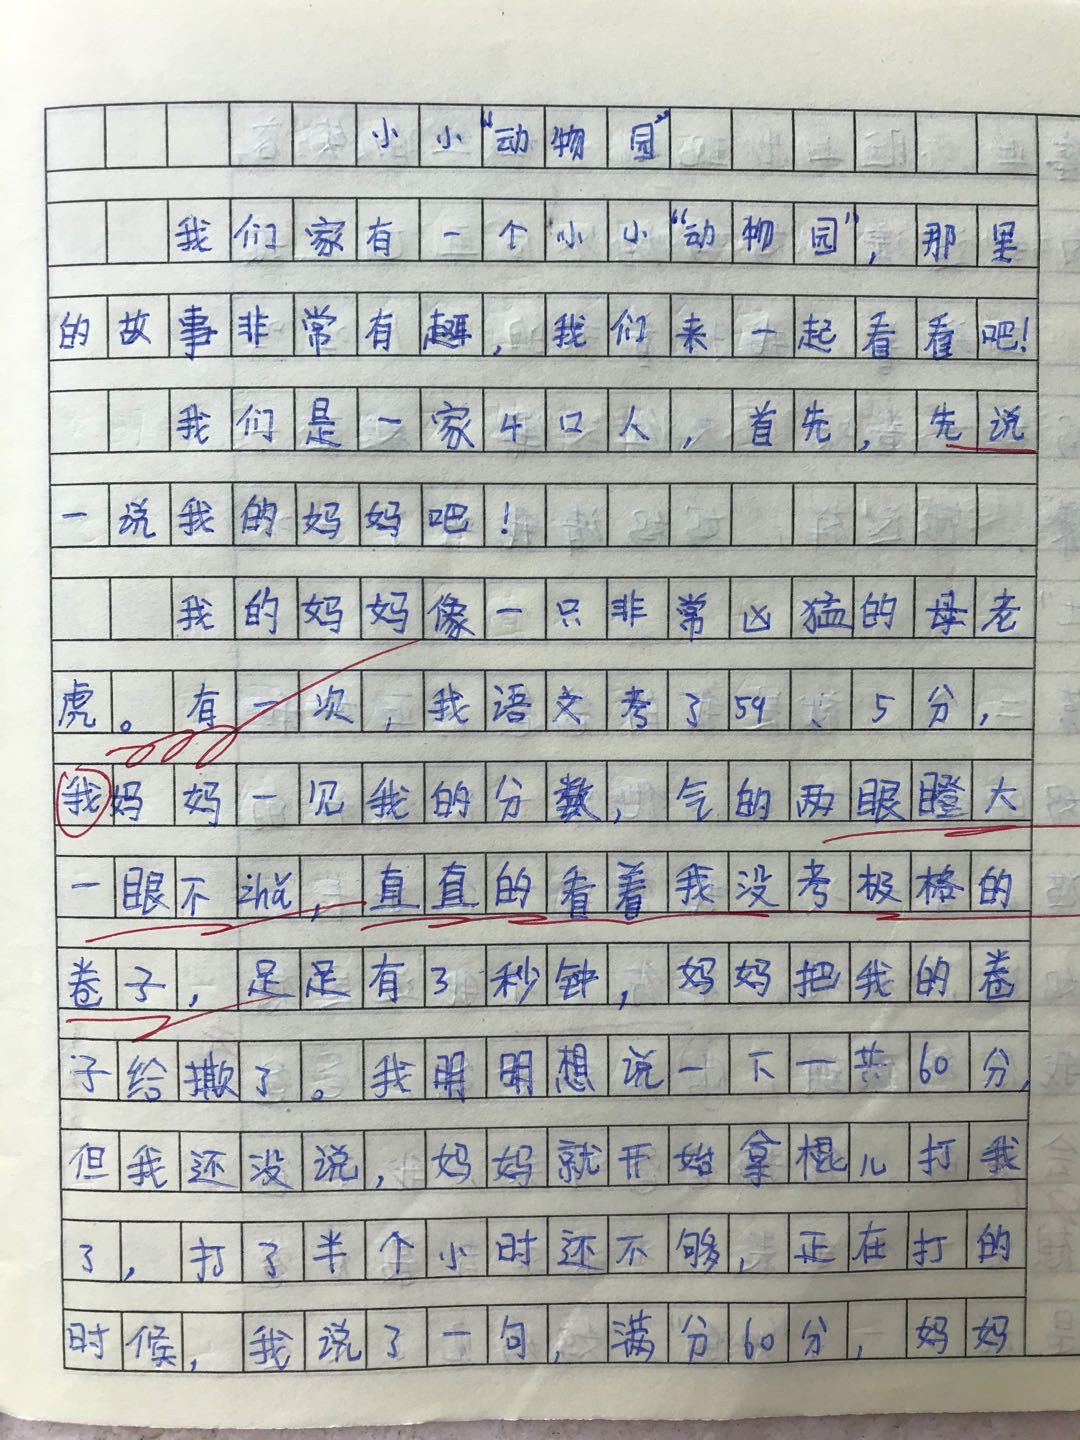 小小“动物园”
我们家有一个小小“动物园”，那里
的故事非常有趣，我们来一起看看吧！
我们是一家4口人，首先，先说
一说我的妈妈吧！
我的妈妈像一只非常凶猛的母老
虎。有一次，我语文考了59、5分，
我妈妈一见我的分数，气的两眼瞪大
一眼不zhǎ，直直的看着我没考极格的
卷子，足足有了秒钟，妈妈把我的卷
子给撕了。我明明想说一下一共60分，
但我还没说，妈妈就开始拿棍儿打我
了，打了半个小时还不够，正在打的
时候，我说了一句，满分60分，妈妈